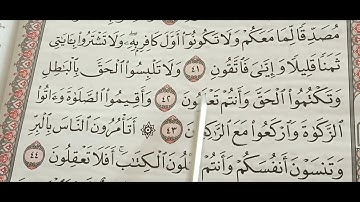 مُصَدِّقًا لِّمَا مَعَكُمْ وَلَا تَكُونُوٓا۟ أَوَّلَ كَافِرٍۭ بِهِۦ ۖ وَلَا تَشْتَرُوا۟ بِـَٔايَٰتِى
ثَمَنًا قَلِيلًا وَإِيَّٰىَ فَٱتَّقُونِ ٤١ وَلَا تَلْبِسُوا۟ ٱلْحَقَّ بِٱلْبَٰطِلِ
وَتَكْتُمُوا۟ ٱلْحَقَّ وَأَنتُمْ تَعْلَمُونَ ٤٢ وَأَقِيمُوا۟ ٱلصَّلَوٰةَ وَءَاتُوا۟
ٱلزَّكَوٰةَ وَٱرْكَعُوا۟ مَعَ ٱلرَّٰكِعِينَ ٤٣ ۞ أَتَأْمُرُونَ ٱلنَّاسَ بِٱلْبِرِّ
وَتَنسَوْنَ أَنفُسَكُمْ وَأَنتُمْ تَتْلُونَ ٱلْكِتَٰبَ ۚ أَفَلَا تَعْقِلُونَ ٤٤